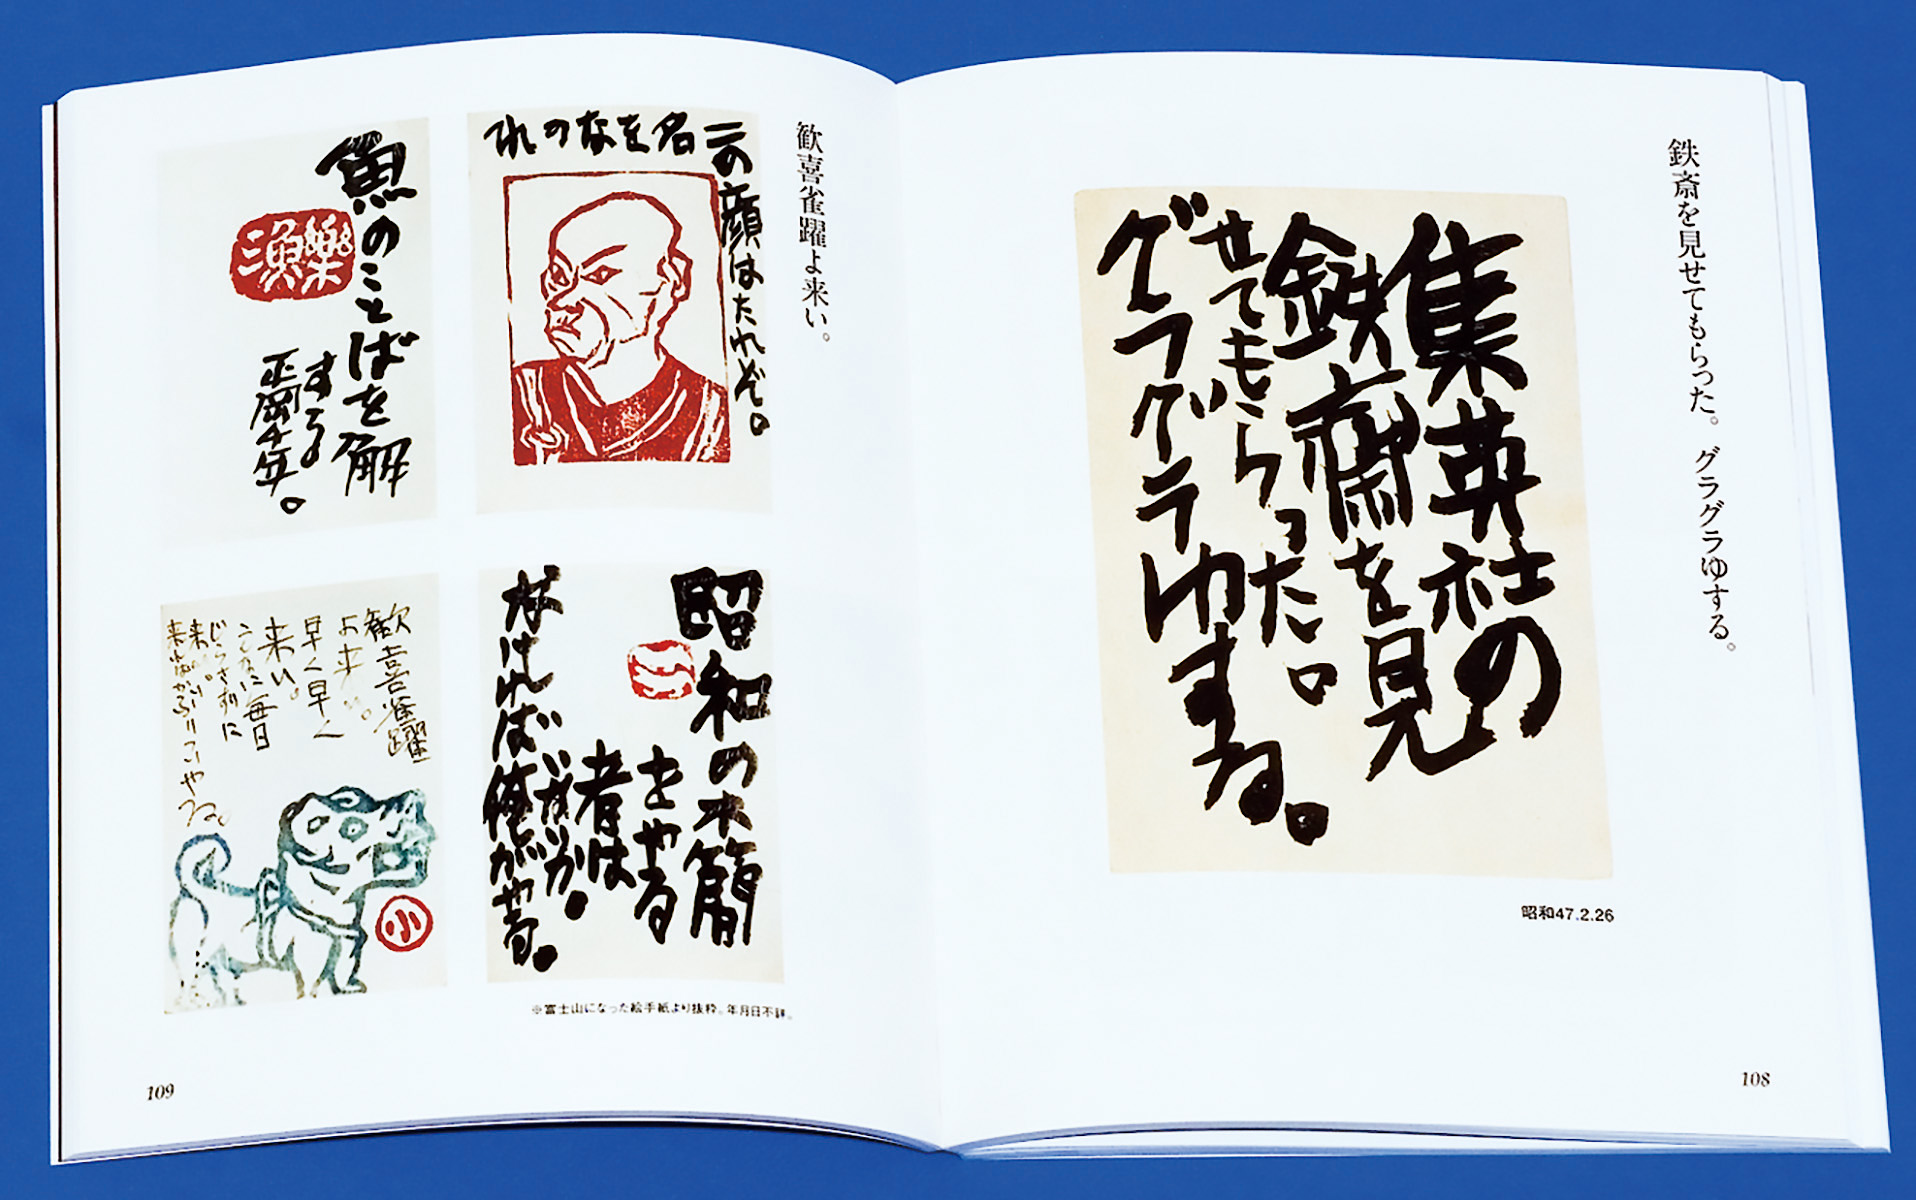 鉄斎を見せてもらった。グラグラゆする。
集英社の
鉄齋を見
せてもらった。
グラグラ
ゆする。
昭和47.2.26
108
歓喜雀躍よ来い。
この顔はたれぞ。
名をなのれ
魚のことばを解
する
正岡千年。
樂
漁
昭和の木簡
をやる
者は
いないか。
なければ俺がやる。
歓喜雀躍
よ来い。
早く早く
来い。
こんなに毎日
じらさずに
来い。
小
※富士山になった絵手紙より抜粋。年月日不詳。
109